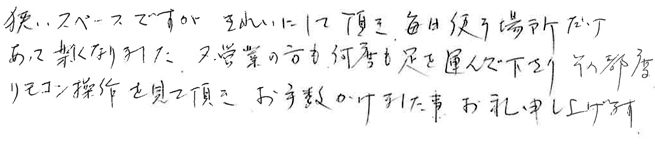 狭いスペースですが きれいにして頂き 毎日使う場所だけ
あって楽しくなりました 又営業の方も何度も足を運んで下さり その都度
リモコン操作を見て頂き お手数かけました事 お礼申し上げます